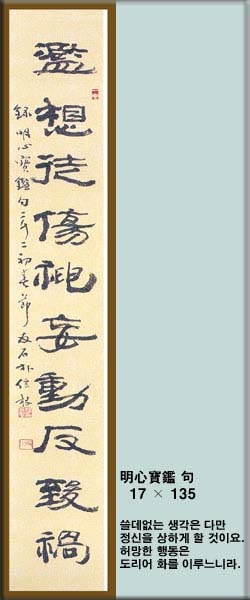 濫想徒傷神妄動反致禍
錄明心寶鑑句二千二初春節友石朴
明心寶鑑 句
17 × 135
쓸데없는 생각은 다만
정신을 상하게 할 것이요.
허망한 행동은
도리어 화를 이루느니라.